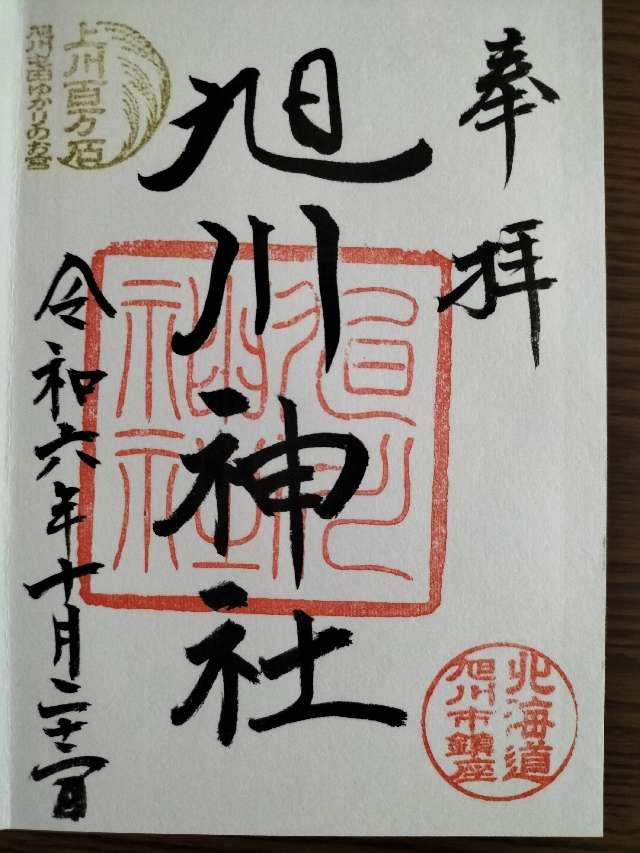 奉拝
旭川神社
上川百万石
旭川屯田ゆかりのお宮
令和六年十月二十
北海道
旭川市鎮座